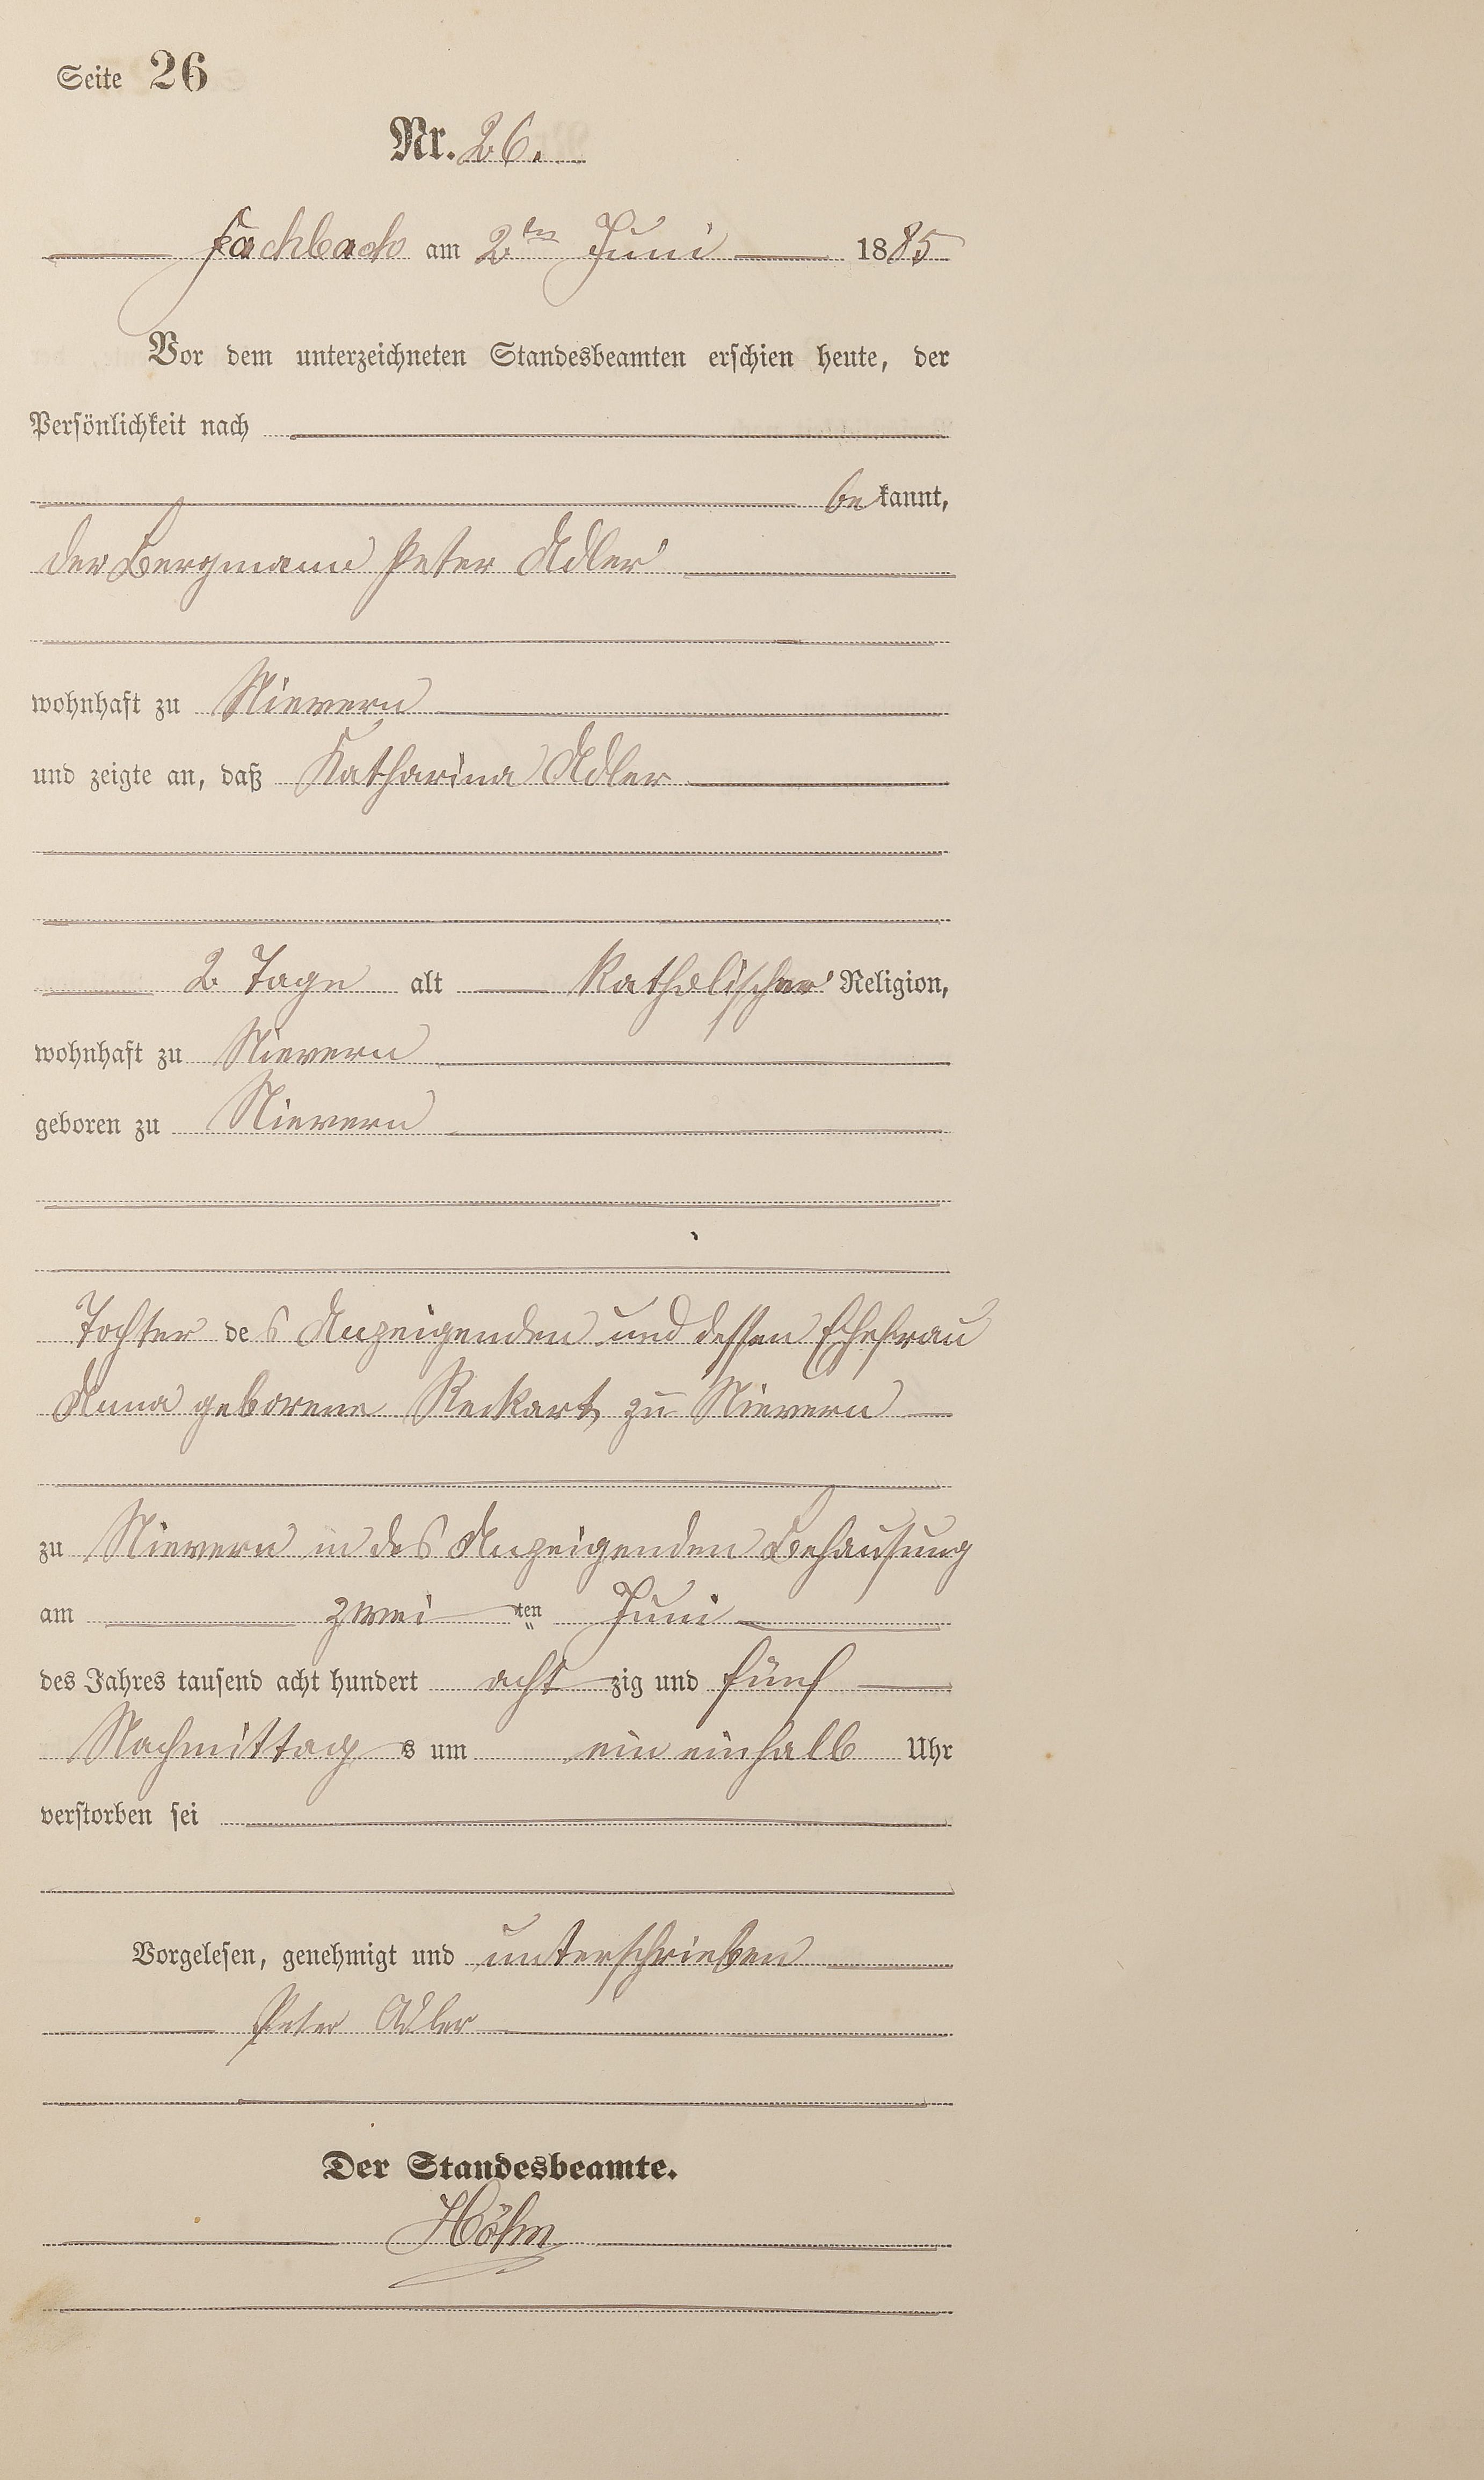 Seite 26
Nr. 26.
Fachbach am 2ten Juni 1885
Vor dem unterzeichneten Standesbeamten erschien heute, der
Persönlichkeit nach
bekannt,
der Bergmann Peter Adler
wohnhaft zu Nievern
und zeigte an, daß Katharina Adler
2 Tage alt katholischer Religion,
wohnhaft zu Nievern
geboren zu Nievern
Tochter des Anzeigenden und dessen Ehefrau
Anna geborene Reckart zu Nievern
zu Nievern in des Anzeigenden Behausung
am zweiten Juni
des Jahres tausend acht hundert achtzig und fünf
Nachmittags um ein einhalb Uhr
verstorben sei
Vorgelesen, genehmigt und unterschrieben
Peter Adler
Der Standesbeamte.
Höhn